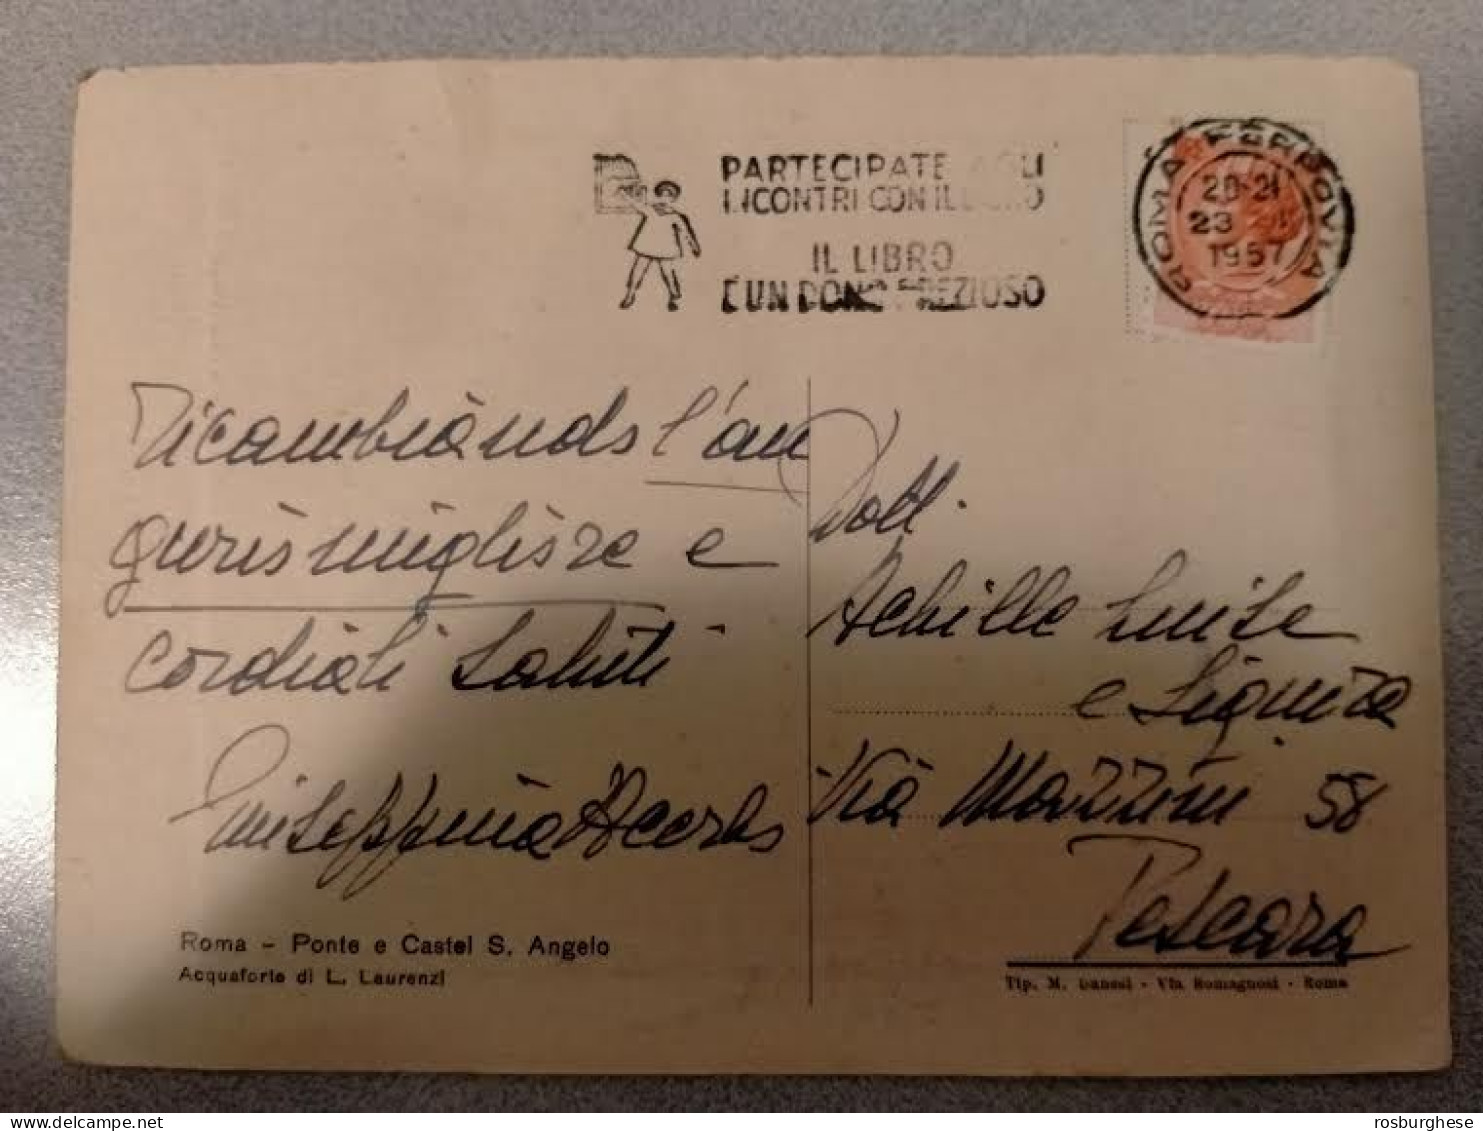 PARTECIPATE AGLI
INCONTRI CON IL LIBRO
IL LIBRO
È UN DONO PREZIOSO
ROMA FERROVIA
20-21
23
1957
Ricambiando l'au
gurio migliore e
cordiali saluti
Giuseppina Acerbo
Dott.
Achille Luise
e Signora
Via Mazzini 58
Pescara
Roma - Ponte e Castel S. Angelo
Acquaforte di L. Laurenzi
Tip. M. Danesi - Via Romagnosi - Roma
rosburghese